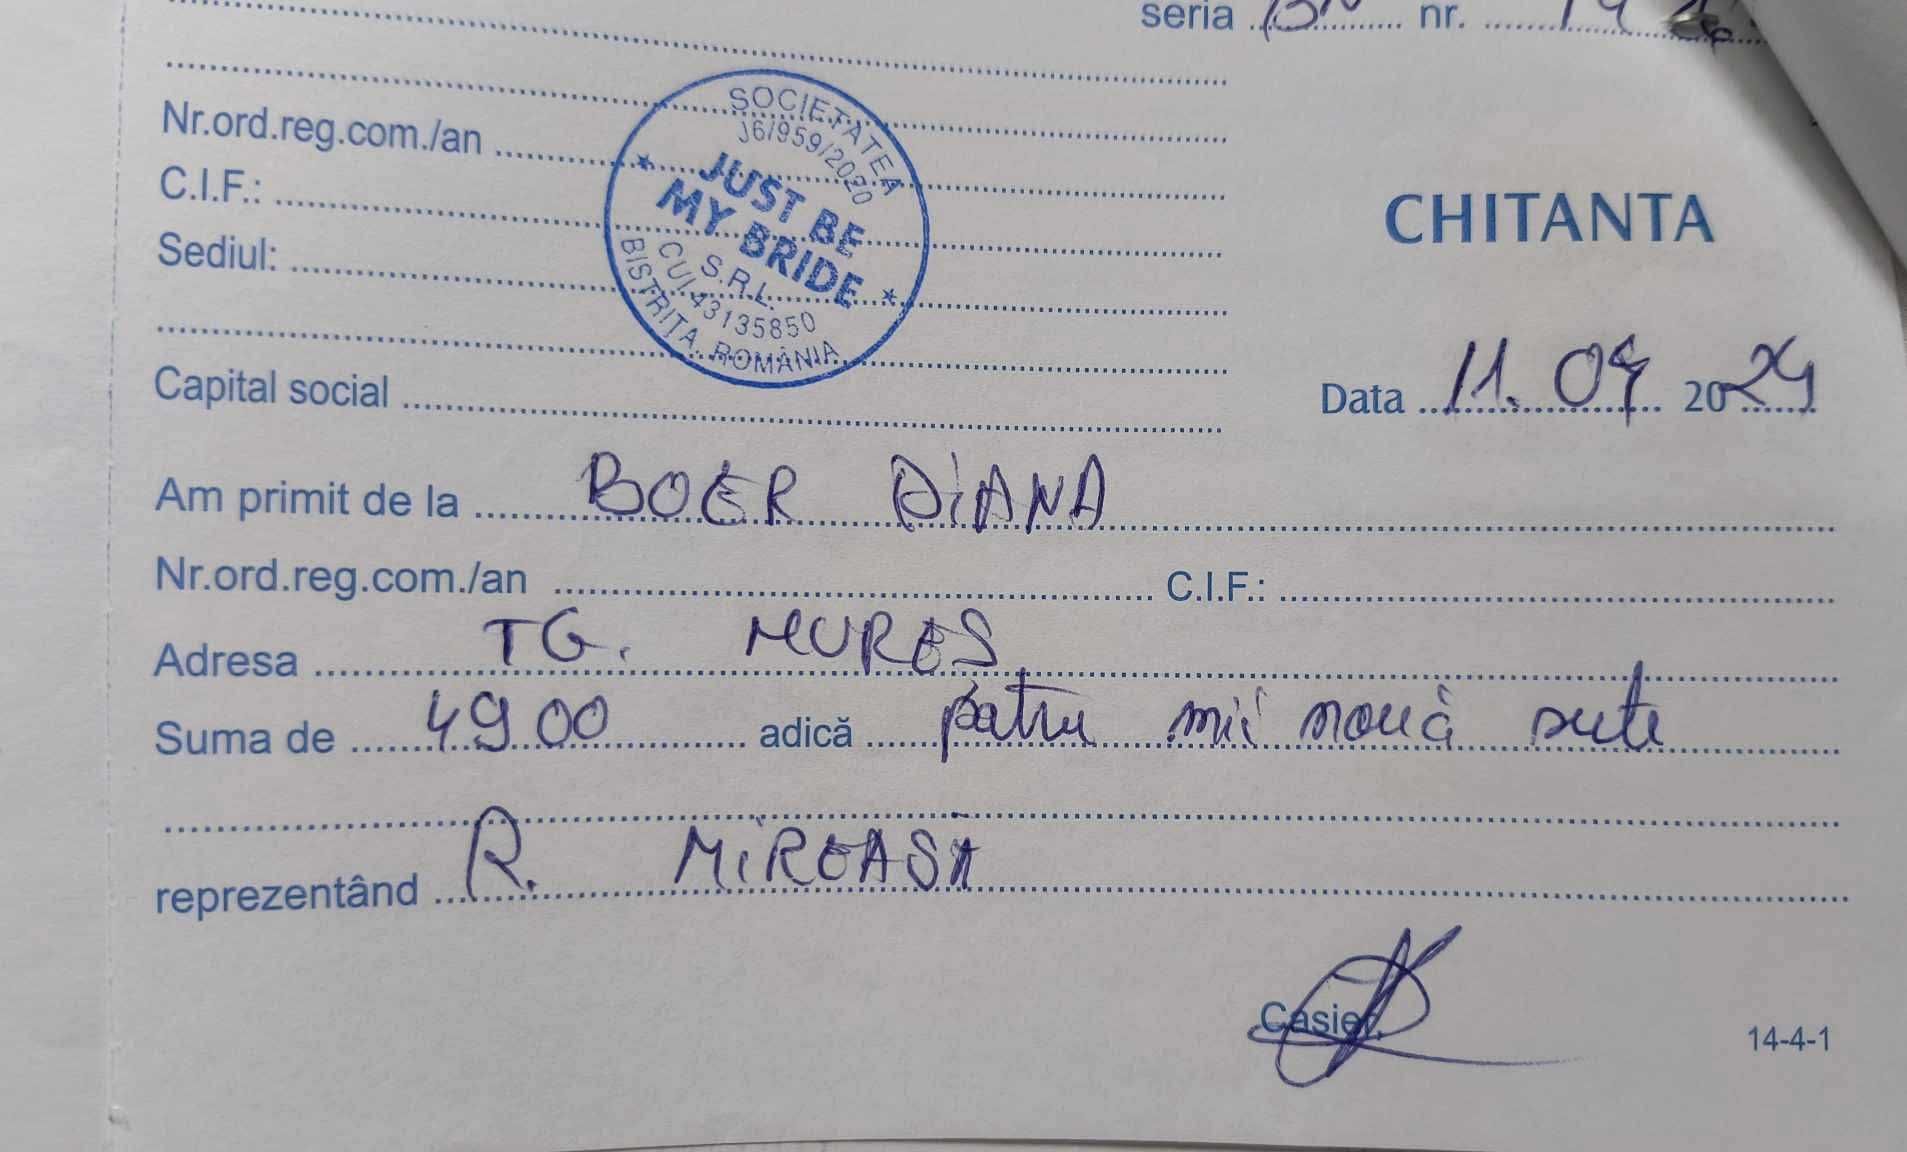 seria BN nr.
Nr.ord.reg.com./an
C.I.F.:
Sediul:
Capital social
SOCIETATEA
J6/959/2020
JUST BE
MY BRIDE
S.R.L.
CUI 43135850
BISTRIȚA, ROMÂNIA
CHITANTA
Data 11.04 2024
Am primit de la BOER DIANA
Nr.ord.reg.com./an C.I.F.:
Adresa TG. MURES
Suma de 4900 adică patru mii nouă sute
reprezentând R. MIREASĂ
Casier,
14-4-1